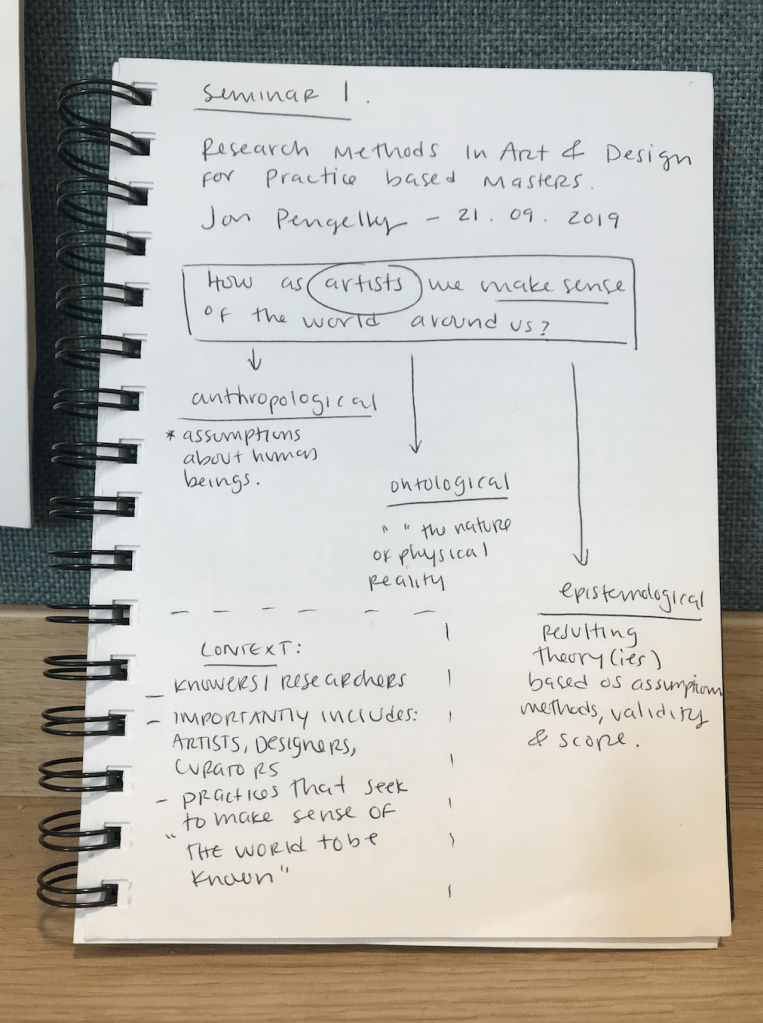 Seminar 1.
Research Methods in Art & Design
for practice based Masters.
Jon Pengelly - 21.09.2019
How as artists we make sense
of the world around us?
anthropological
* assumptions
about human
beings.
ontological
" " the nature
of physical
reality
epistemological
resulting
theory(ies)
based os assumption
methods, validity
& scope.
CONTEXT:
- KNOWERS / RESEARCHERS
- IMPORTANTLY INCLUDES:
ARTISTS, DESIGNERS,
CURATORS
- practices that seek
to make sense of
"THE WORLD to be
known"